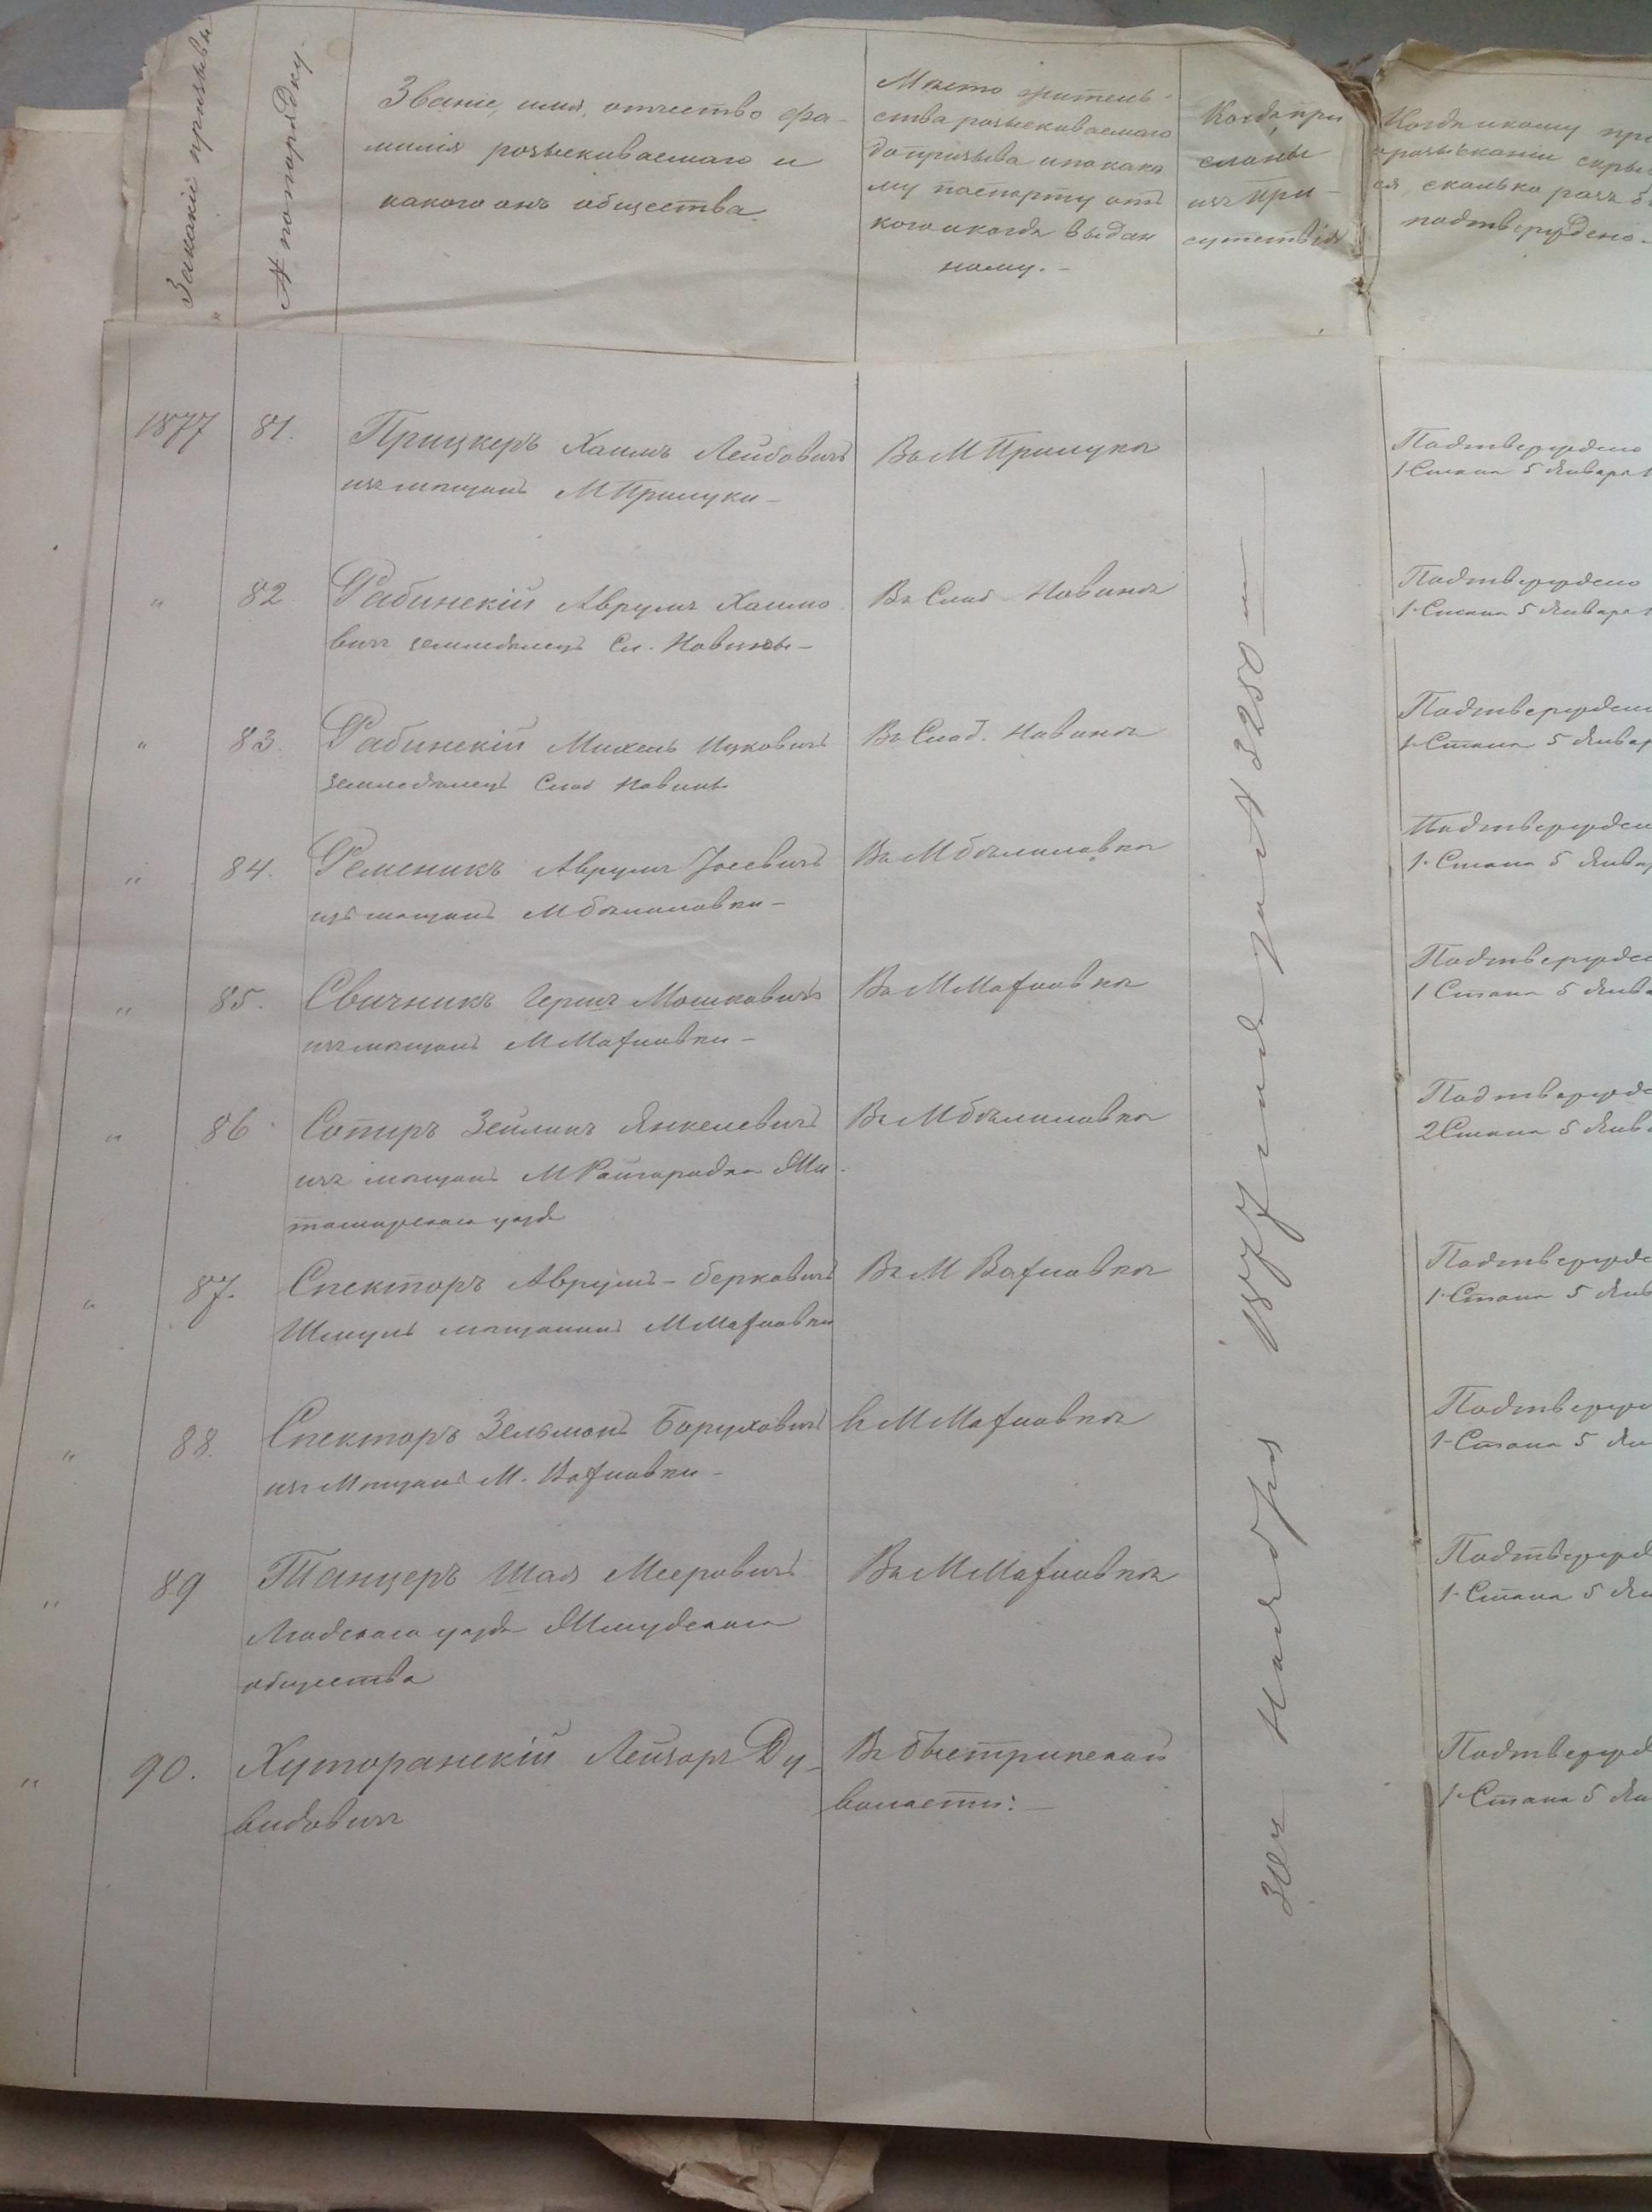 За какой призывъ
№ по порядку.
Званіе, имя, отчество фа-
милія розыскиваемаго и
какого онъ общества
Мѣсто житель-
ства розыскиваемаго
до призыва и по како
му паспорту отъ
кого и когда выдан
ному. –
Когда при
сланы
изъ При-
сутствія
Когда и кому пре
о розысканіи скры
ся, сколько разъ б
подтверждено –
1877 81. Прицкеръ Хаимъ Лейбовичъ
изъ мѣщанъ М Прилуки –
Въ М Прилукѣ
Подтверждено
1 Стана 5 Января 1
" 82 Рабинскій Аврумъ Хаимо
вичъ земледѣлецъ Сл. Новины –
Въ Слоб Новинѣ
Подтверждено
1 Стана 5 Января 1
" 83. Рабинскій Михель Ицковичъ
земледѣлецъ Слоб Новины
Въ Слоб. Новинѣ
Подтверждено
1 Стана 5 Январ
" 84. Ременикъ Аврумъ Іосевичъ
изъ мѣщанъ М Бѣлиловки –
Въ М Бѣлиловкѣ
Подтвержден
1 Стана 5 Январ
" 85. Свичникъ Гершъ Мошковичъ
изъ мѣщанъ М Махновки –
Въ М Махновкѣ
Подтвержде
1 Стана 5 Янва
" 86 Сотиръ Зейликъ Янкелевичъ
изъ мѣщанъ М Райгородка Жи-
томирскаго уѣзда
Въ М Бѣлиловкѣ
Подтвержде
2 Стана 5 Янва
" 87. Спекторъ Аврумъ-Берковичъ
Шмуль мѣщанинъ М Махновки
Въ М Вахновкѣ
Подтвержде
1 Стана 5 Янв
" 88. Спекторъ Зельманъ Боруховичъ
изъ Мѣщанъ М. Вахновки –
В М Махновкѣ
Подтверж
1 Стана 5 Ян
" 89 Танцеръ Шая Мееровичъ
уѣзда
общества
Въ М Махновкѣ
Подтвержд
1 Стана 5 Ян
" 90. Хуторанскій Лейзоръ Ду-
видовичъ
Въ Быстрикской
волости: –
Подтвержд
1 Стана 5 Ян
1877 года за № 3280 –